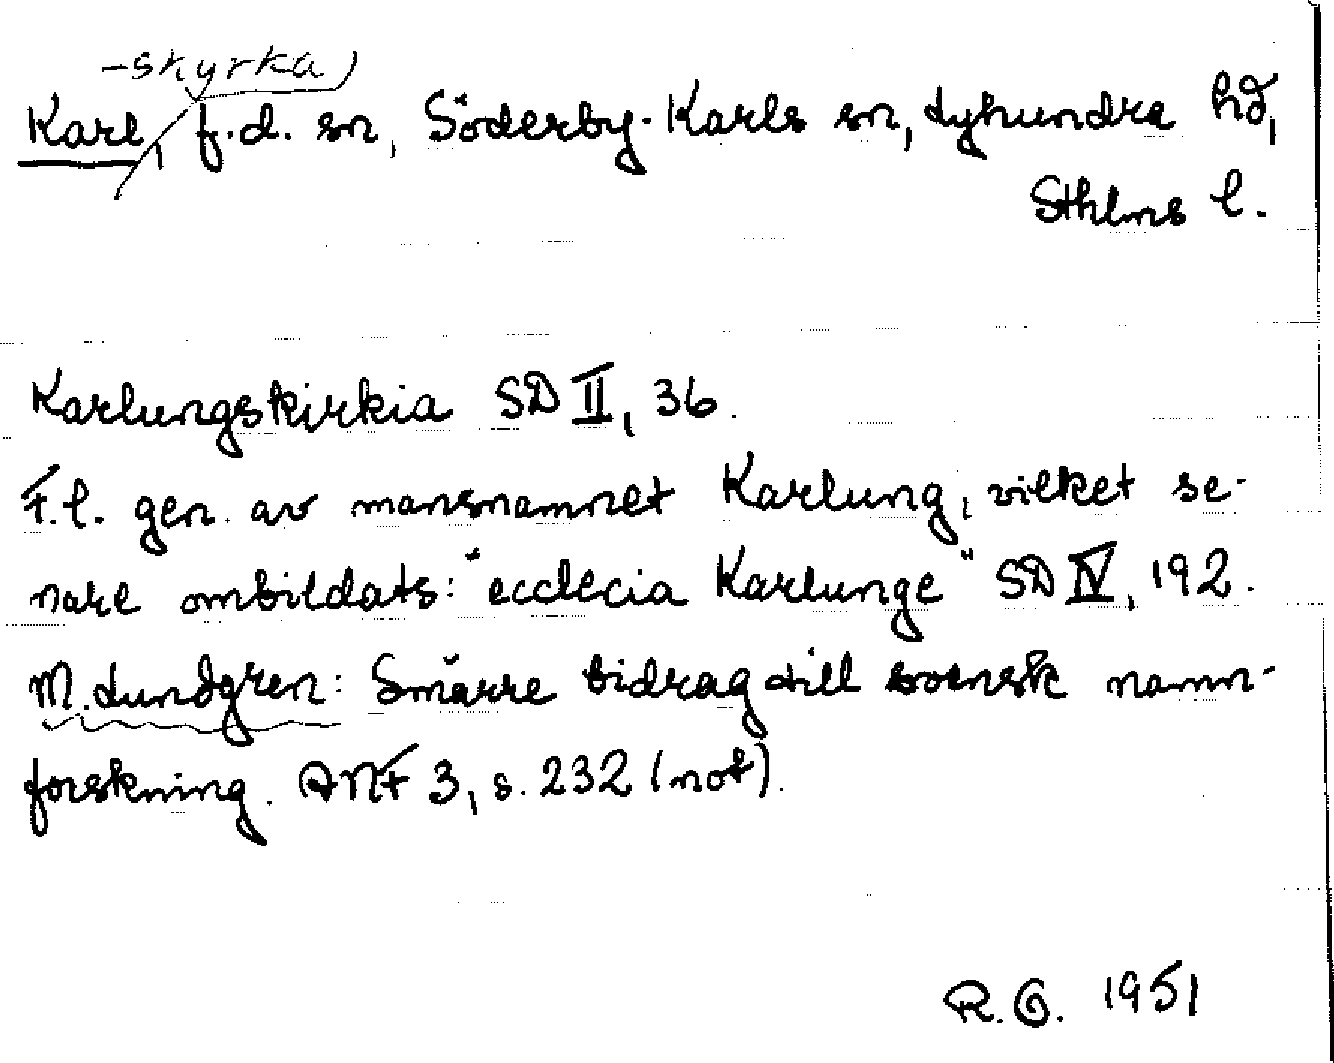 -skyrka)
Karl, f.d. sn, Söderby-Karls sn, Lyhundra hd,
Sthlms l.
Karlungskirkia SD II, 36.
F.l. gen. av mansnamnet Karlung, vilket se-
nare ombildats: "ecclecia Karlunge" SD IV, 192.
M. Lundgren: Smärre bidrag till svensk namn-
forskning. ANF 3, s. 232 (not).
R.G. 1951